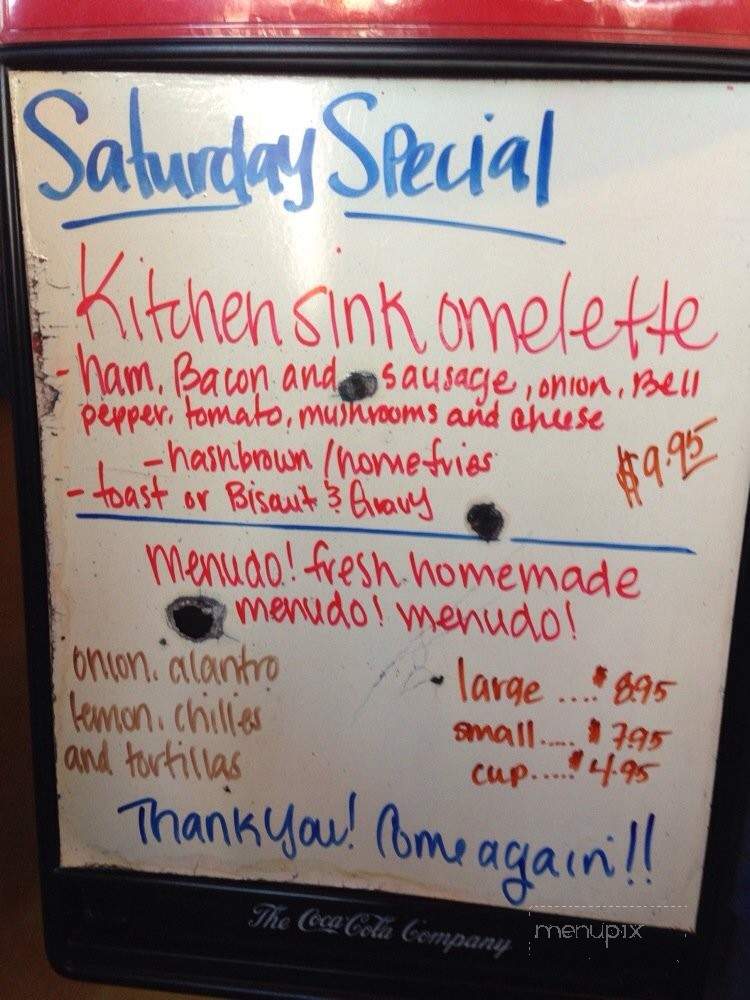 Saturday Special
Kitchen sink omelette
- ham, Bacon and sausage, onion, Bell
pepper, tomato, mushrooms and cheese
- hashbrown / homefries
$9.95
- toast or Biscuit & Gravy
Menudo! fresh homemade
menudo! menudo!
onion, cilantro
lemon, chilles
and tortillas
large .... $8.95
small..... $7.95
cup.....$4.95
Thank you! Come again!!
The Coca-Cola Company
menupix